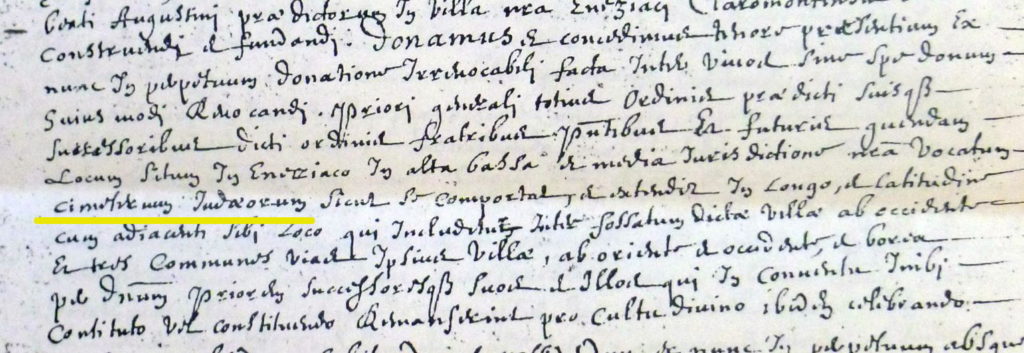 beati Augustini prædictorum In villa nra Enezíaci Claromontensis
Construendi & fundandi. Donamus & concedimus tenore præsentium Ex
nunc In perpetuum donatione Irrevocabili facta Inter vivos sine spe donum
huiusmodi Revocandi. Priori generali totius Ordinis prædicti suisq₃
successoribus dicti ordinis fratribus pñtibus Et futuris quendam
Locum situm In Enezziaco In alta bassa & media Iurisdictione nrã vocatum
cimetrium Iudæorum sicut se comportat, & extendit In longo, & latitudine
cum adiacenti sibi loco qui Includent Inter fossatum dictæ villæ ab occidente
Et tres Communes vias Ipsius villæ, ab oriente & occidente, & borea
per Dnum Priorem successoresq₃ suos & Illos qui In conventu Inibi
Constituto vel constituendo Remanserint pro cultu divino ibidem celebrando
& nunc In perpetuum absque